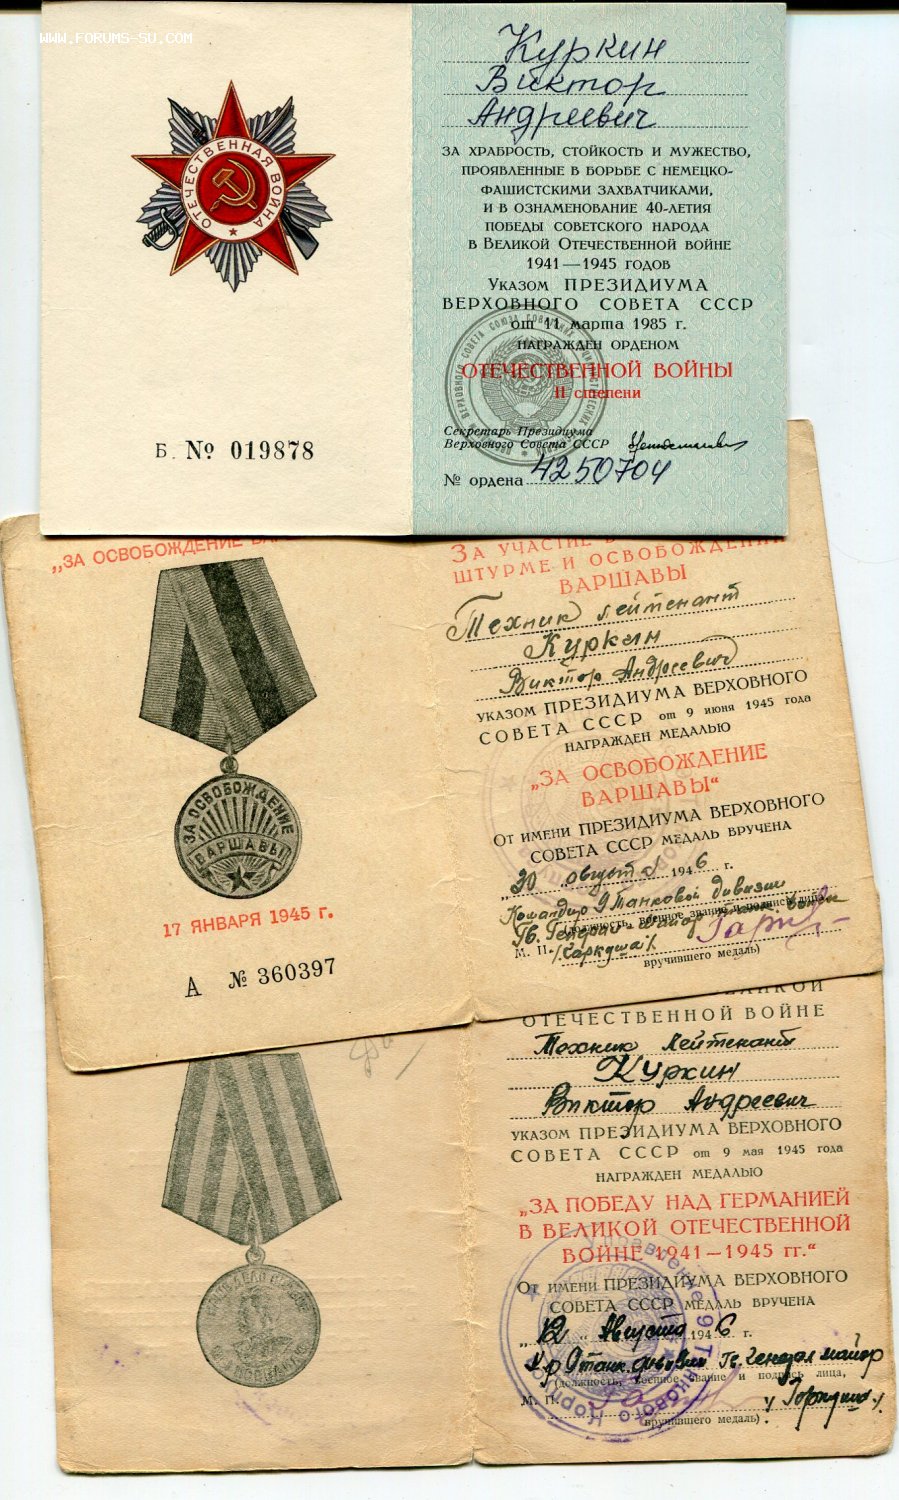 WWW.FORUMS-SU.COM
ОТЕЧЕСТВЕННАЯ ВОЙНА
Б. № 019878
Куркин
Виктор
Андреевич
ЗА ХРАБРОСТЬ, СТОЙКОСТЬ И МУЖЕСТВО,
ПРОЯВЛЕННЫЕ В БОРЬБЕ С НЕМЕЦКО-
ФАШИСТСКИМИ ЗАХВАТЧИКАМИ,
И В ОЗНАМЕНОВАНИЕ 40-ЛЕТИЯ
ПОБЕДЫ СОВЕТСКОГО НАРОДА
В ВЕЛИКОЙ ОТЕЧЕСТВЕННОЙ ВОЙНЕ
1941—1945 ГОДОВ
УКАЗОМ ПРЕЗИДИУМА
ВЕРХОВНОГО СОВЕТА СССР
от 11 марта 1985 г.
НАГРАЖДЕН ОРДЕНОМ
ОТЕЧЕСТВЕННОЙ ВОЙНЫ
II степени
Секретарь Президиума
Верховного Совета СССР
№ ордена 4250704
„ЗА ОСВОБОЖДЕНИЕ
ЗА ОСВОБОЖДЕНИЕ
ВАРШАВЫ
17 ЯНВАРЯ 1945 г.
А № 360397
ЗА УЧАСТИЕ В
ШТУРМЕ И ОСВОБОЖДЕНИИ
ВАРШАВЫ
Техник лейтенант
Куркин
Виктор Андреевич
УКАЗОМ ПРЕЗИДИУМА ВЕРХОВНОГО
СОВЕТА СССР от 9 июня 1945 года
НАГРАЖДЕН МЕДАЛЬЮ
„ЗА ОСВОБОЖДЕНИЕ
ВАРШАВЫ“
ОТ ИМЕНИ ПРЕЗИДИУМА ВЕРХОВНОГО
СОВЕТА СССР МЕДАЛЬ ВРУЧЕНА
„30 августа 1946 г.
Командир 9 танковой дивизии
(должность, военное звание и подпись лица,
Гв. Генерал-майор танк. войск
М. П.
вручившего медаль)
ОТЕЧЕСТВЕННОЙ ВОЙНЕ
Техник Лейтенант
Куркин
Виктор Андреевич
УКАЗОМ ПРЕЗИДИУМА ВЕРХОВНОГО
СОВЕТА СССР от 9 мая 1945 года
НАГРАЖДЕН МЕДАЛЬЮ
„ЗА ПОБЕДУ НАД ГЕРМАНИЕЙ
В ВЕЛИКОЙ ОТЕЧЕСТВЕННОЙ
ВОЙНЕ 1941—1945 гг.“
ОТ ИМЕНИ ПРЕЗИДИУМА ВЕРХОВНОГО
СОВЕТА СССР МЕДАЛЬ ВРУЧЕНА
„12“ Августа 1946 г.
К-р 9 танк. дивизии Гв. Генерал майор
(должность, военное звание и подпись лица,
М. П.
вручившего медаль)
Управление 9 Танкового Корпуса